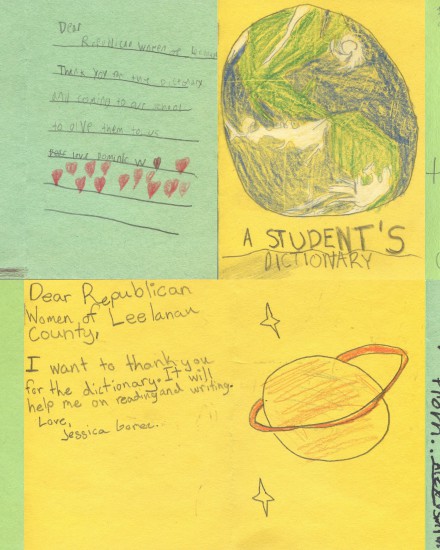 Dear
Republican Women of
Thank you for the dictionary
and coming to our school
to give them to us
love Dominic W
A STUDENT'S
DICTIONARY
Dear Republican
Women of Leelanau
County,
I want to thank you
for the dictionary. It will
help me on reading and writing.
Love,
Jessica